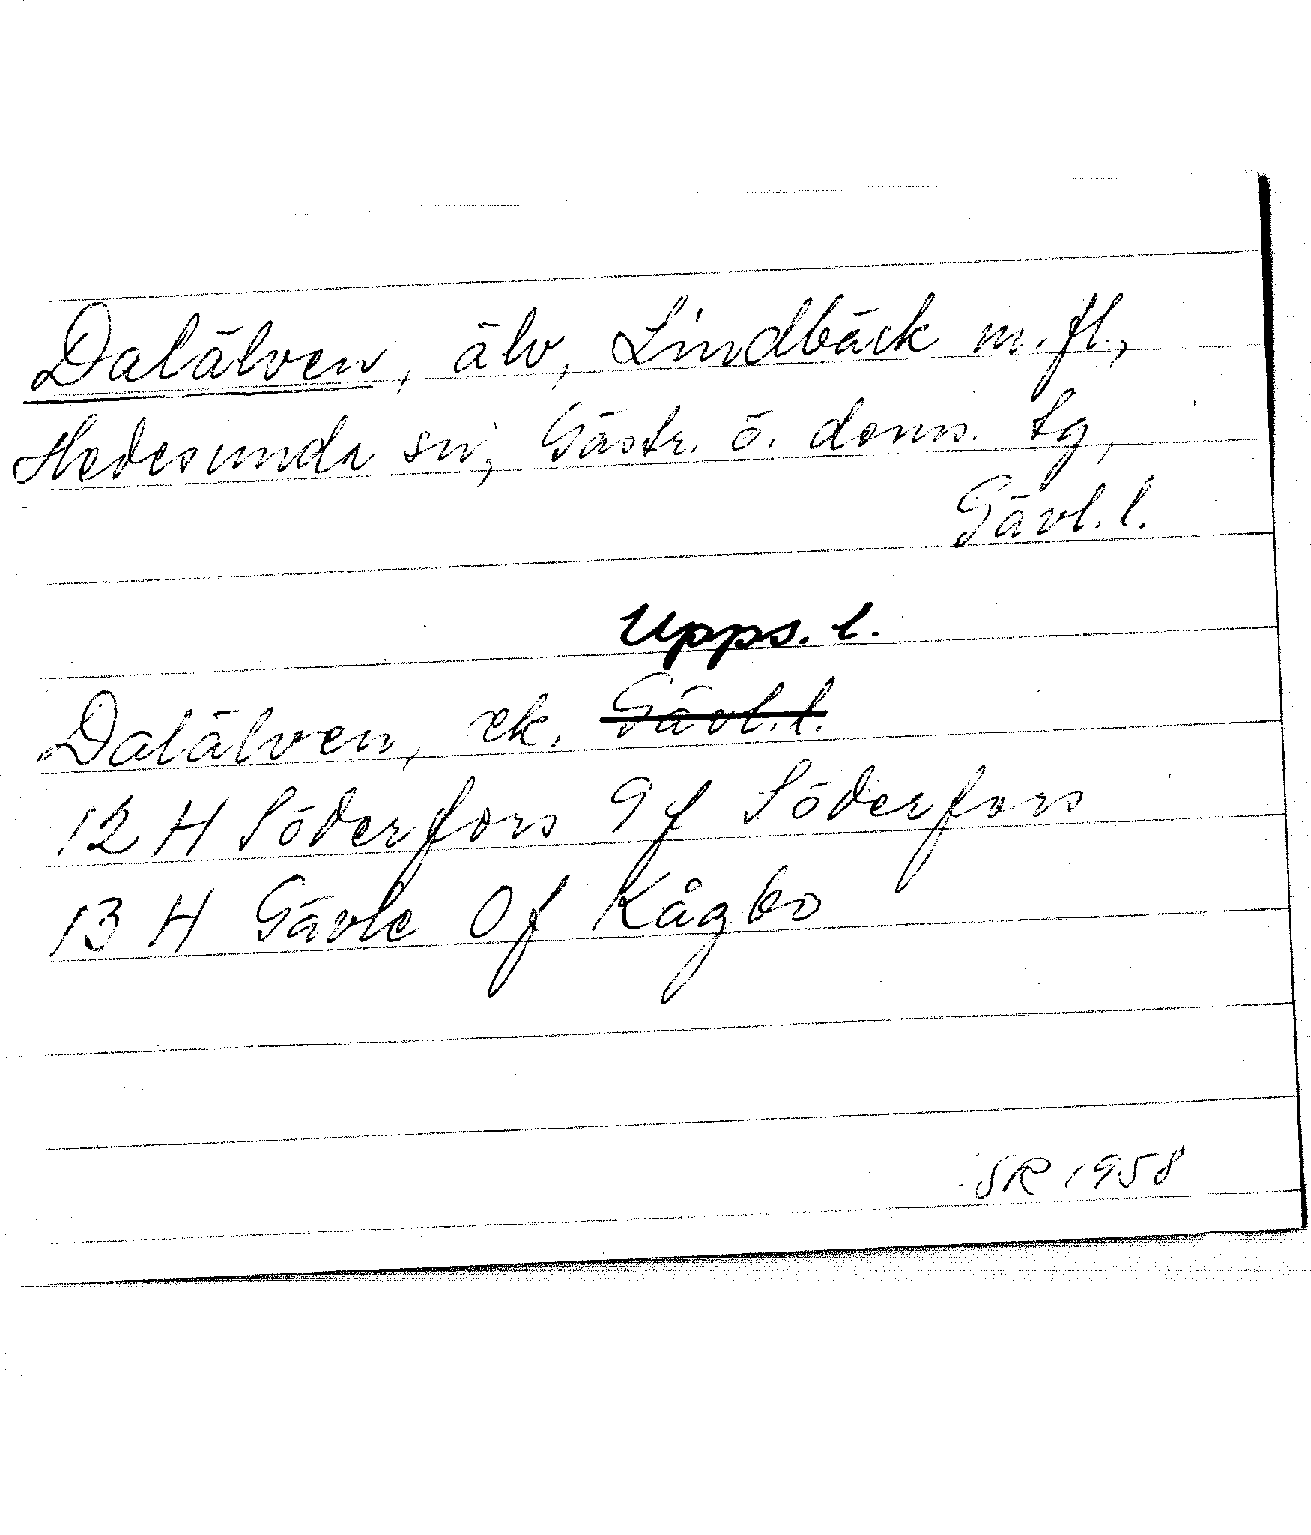 Dalälven, älv, Lindbäck m.fl.,
Hedesunda sn, Gästr. ö. doms. tg,
Gävl. l.
Upps. l.
Dalälven, ek. Gävl. l.
12 H Söderfors 9f Söderfors
13 H Gävle 0f Kågbo
SR 1958